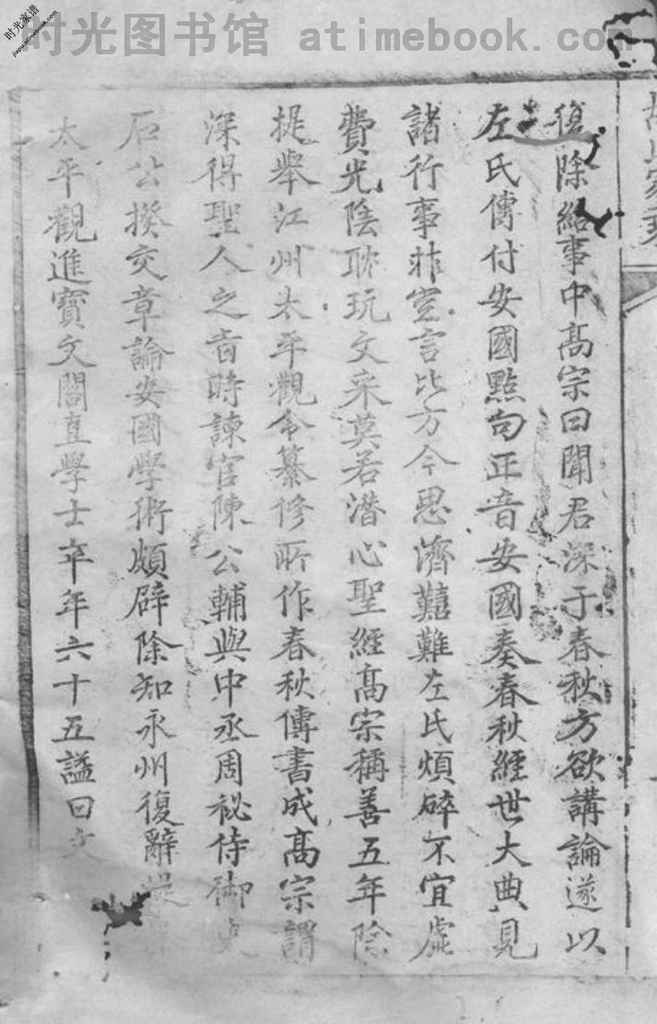 时光图书馆 atimebook.com
时光家谱
復除給事中高宗曰聞君深于春秋方欲講論遂以
左氏傳付安國點句正音安國奏春秋經世大典見
諸行事非空言比方今思濟囏難左氏煩碎不宜虛
費光陰耽玩文采莫若潜心聖經高宗稱善五年除
提舉江州太平觀令纂修所作春秋傳書成高宗謂
深得聖人之旨時諫官陳公輔與中丞周祕侍御史
石公揆交章論安國學術頗僻除知永州復辭提
太平觀進寶文閣直學士卒年六十五謚曰文